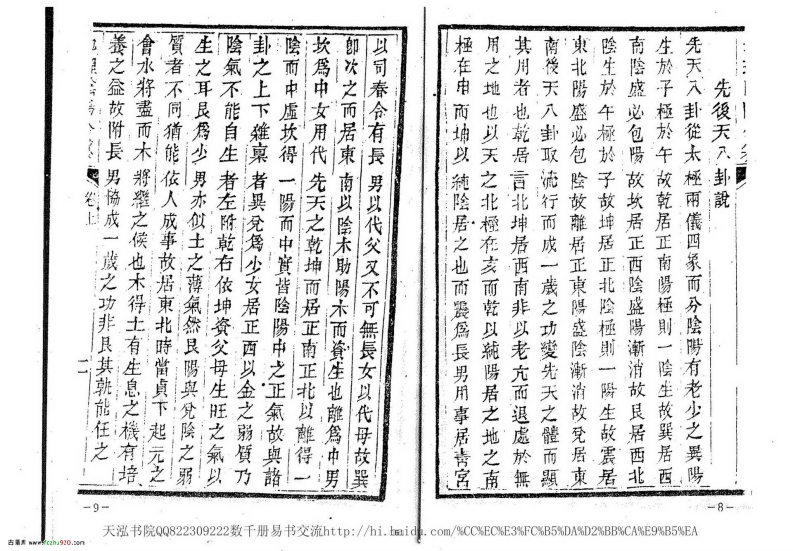 先後天八卦說
先天八卦從太極兩儀四象而分陰陽有老少之異陽
生於子極於午故乾居正南陽極則一陰生故巽居西
南陰盛必包陽故坎居正西陰盛陽漸消故艮居西北
陰生於午極於子故坤居正北陰極則一陽生故震居
東北陽盛必包陰故離居正東陽盛陰漸消故兌居東
南後天八卦取流行而成一歲之功變先天之體而顯
其用者也乾居言北坤居西南非以老亢而退處於無
用之地也以天之北極在亥而乾以純陽居之地之南
極在申而坤以純陰居之也而震爲長男用事居青宮
-8-
以司春令有長男以代父又不可無長女以代母故巽
卽次之而居東南以陰木助陽木而資生也離爲中男
坎爲中女用代先天之乾坤而居正南正北以離得一
陰而中虛坎得一陽而中實皆陰陽中之正氣故與諸
卦之上下雜稟者異兌爲少女居正西以金之弱質乃
陰氣不能自生者左附乾右依坤資父母生旺之氣以
生之耳艮爲少男亦似土之薄氣然艮陽與兌陰之弱
質者不同猶能依人成事故居東北時當貞下起元之
會水將盡而木將繼之候也木得土有生息之機有培
養之益故附長男協成一歲之功非艮其孰能任之
卷上
二
-9-
天泓书院QQ822309222数千册易书交流http://hi.baidu.com/%CC%EC%E3%FC%B5%DA%D2%BB%CA%E9%B5%EA